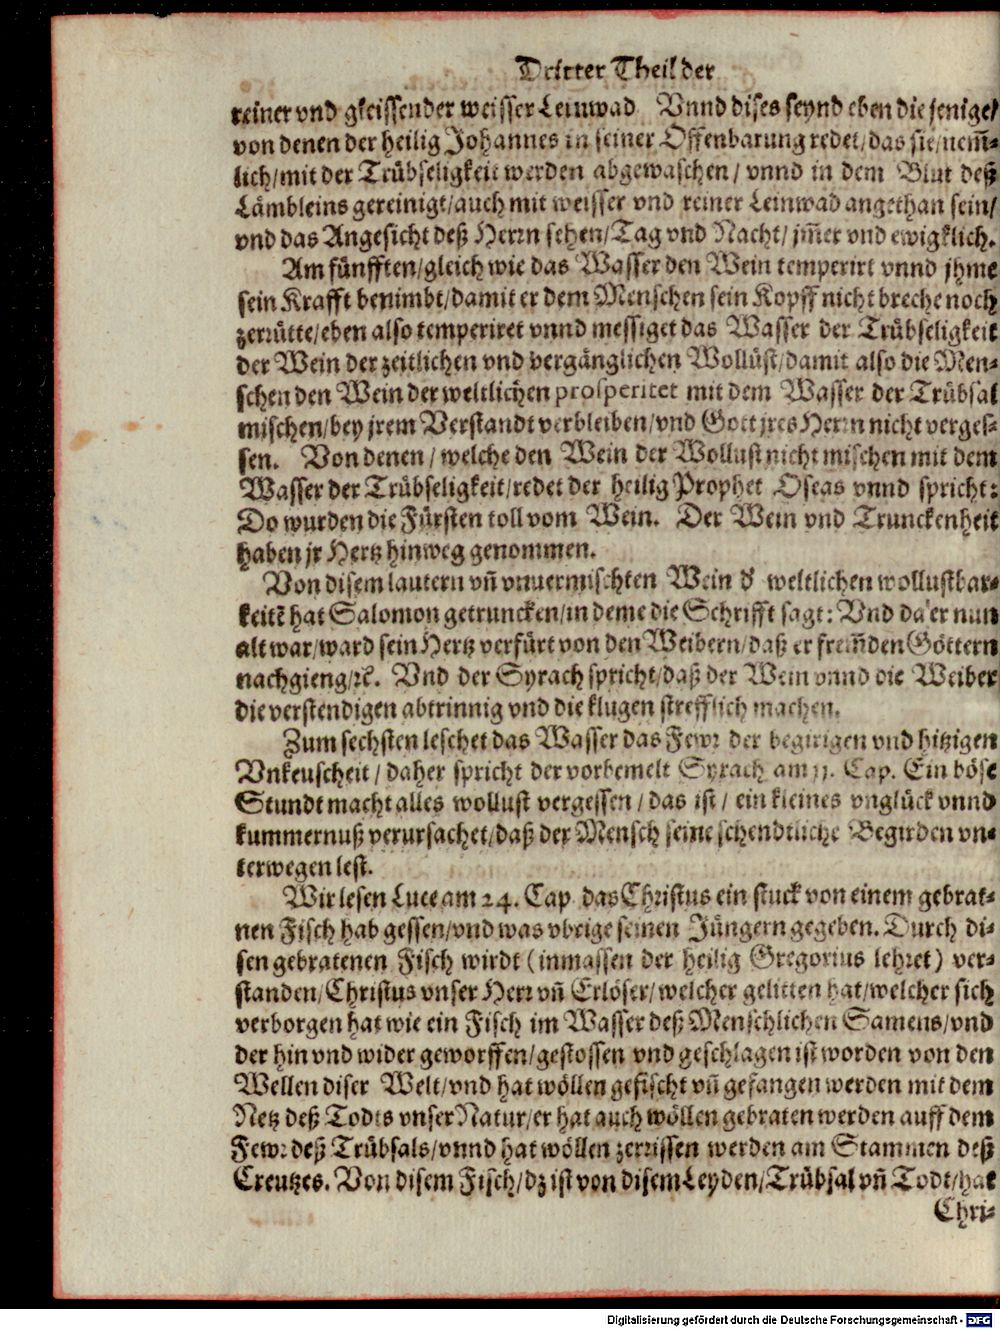 Dritter Theil der
reiner vnd gleissender weisser Leinwad   Vnnd dises seynd eben die jenige/
von denen der heilig Johannes in seiner Offenbarung redet/das sie/nem̃-
lich/mit der Trübseligkeit werden abgewaschen/ vnnd in dem Blut deß
Lämbleins gereinigt/auch mit weisser vnd reiner Leinwad angethan sein/
vnd das Angesicht deß Herrn sehen/Tag vnd Nacht/ jm̃er vnd ewigklich.
Am fünfften/gleich wie das Wasser den Wein temperirt vnnd jhme
sein Krafft benimbt/damit er dem Menschen sein Kopff nicht breche noch
zerrütte/eben also temperiret vnnd messiget das Wasser der Trübseligkeit
der Wein der zeitlichen vnd vergänglichen Wollüst/damit also die Men-
schen den Wein der weltlichen prosperitet mit dem Wasser der Trübsal
mischen/bey jrem Verstandt verbleiben/vnd Gott jres Herrn nicht verges-
sen.   Von denen / welche den Wein der Wollust nicht mischen mit dem
Wasser der Trübseligkeit/redet der heilig Prophet Oseas vnnd spricht:
Do wurden die Fürsten toll vom Wein.  Der Wein vnd Trunckenheit
haben jr Hertz hinweg genommen.
Von disem lautern vñ vnuermischten Wein d' weltlichen wollustbar-
keitẽ hat Salomon getruncken/in deme die Schrifft sagt: Vnd da er nun
alt war/ward sein Hertz verfürt von den Weibern/daß er frem̃den Göttern
nachgieng/ꝛc.  Vnd der Syrach spricht/daß der Wein vnnd die Weiber
die verstendigen abtrinnig vnd die klugen strefflich machen.
Zum sechsten leschet das Wasser das Fewr der begirigen vnd hitzigen
Vnkeuscheit / daher spricht der vorbemelt Syrach am 11. Cap. Ein böse
Stundt macht alles wollust vergessen / das ist / ein kleines vnglück vnnd
kummernuß verursachet/daß der Mensch seine schendtliche Begirden vn-
terwegen lest.
Wir lesen Luce am 24. Cap das Christus ein stuck von einem gebrat-
nen Fisch hab gessen/vnd was vbrige seinen Jüngern gegeben. Durch di-
sen gebratenen Fisch wirdt (inmassen der heilig Gregorius lehret) ver-
standen/Christus vnser Herr vñ Erlöser/welcher gelitten hat/welcher sich
verborgen hat wie ein Fisch im Wasser deß Menschlichen Samens/vnd
der hin vnd wider geworffen/gestossen vnd geschlagen ist worden von den
Wellen diser Welt/vnd hat wöllen gefischt vñ gefangen werden mit dem
Netz deß Todts vnser Natur/er hat auch wöllen gebraten werden auff dem
Fewr deß Trübsals/vnnd hat wöllen zerrissen werden am Stammen deß
Creutzes. Von disem Fisch/dz ist von disem Leyden/Trübsal vñ Todt/hat
Chri-
Digitalisierung gefördert durch die Deutsche Forschungsgemeinschaft - DFG